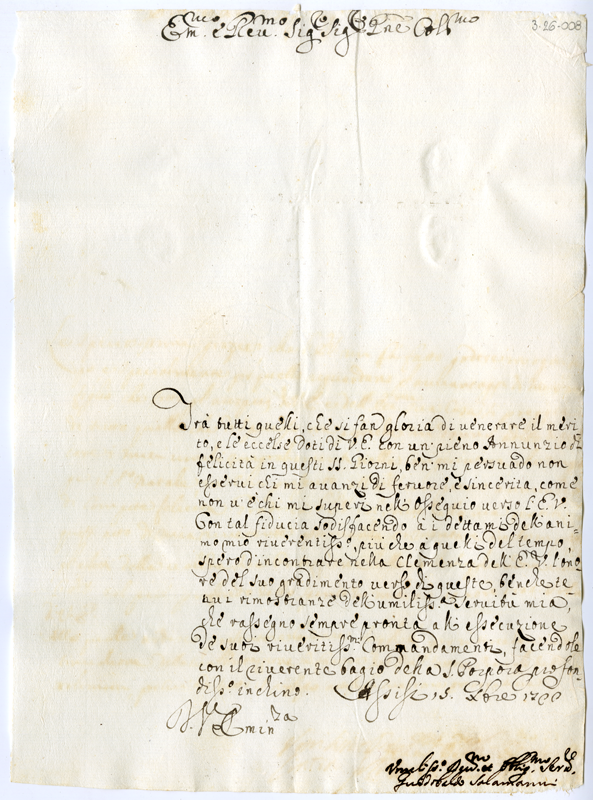 3-26-008
Em.mo e Reu.mo Sig.e Sig.e P.ne Coll.mo
Trà tutti quelli, che si fan gloria di venerare il meri
to, e le eccelse Doti di V.E. con un pieno Annunzio di
felicità in questi SS. Giorni, ben mi persuado non
esserui chi mi auanzi di feruore, e sincerità, come
non u'è chi mi superi nell'Ossequio verso l'E.V.
Con tal fiducia sodisfacendo a i dettami dell'ani=
mo mio riuerentiss.o, più che a quelli del tempo,
spero d'incontrare nella Clemenza dell'E.V. l'ono
re del suo gradimento verso di queste, benche te
nui rimostranze dell'umiliss.a Seruitù mia,
che rassegno sempre pronta all'essecuzione
de suoi riueritiss.mi Commandamenti, facendole
con il riuerente bagio della S. Porpora profon
diss.o inchino. Assisi 15. Xbre 1700
D. V. Emin.za
Umiliss.o Deu.mo et Obblig.mo Seru.e
Salamanni